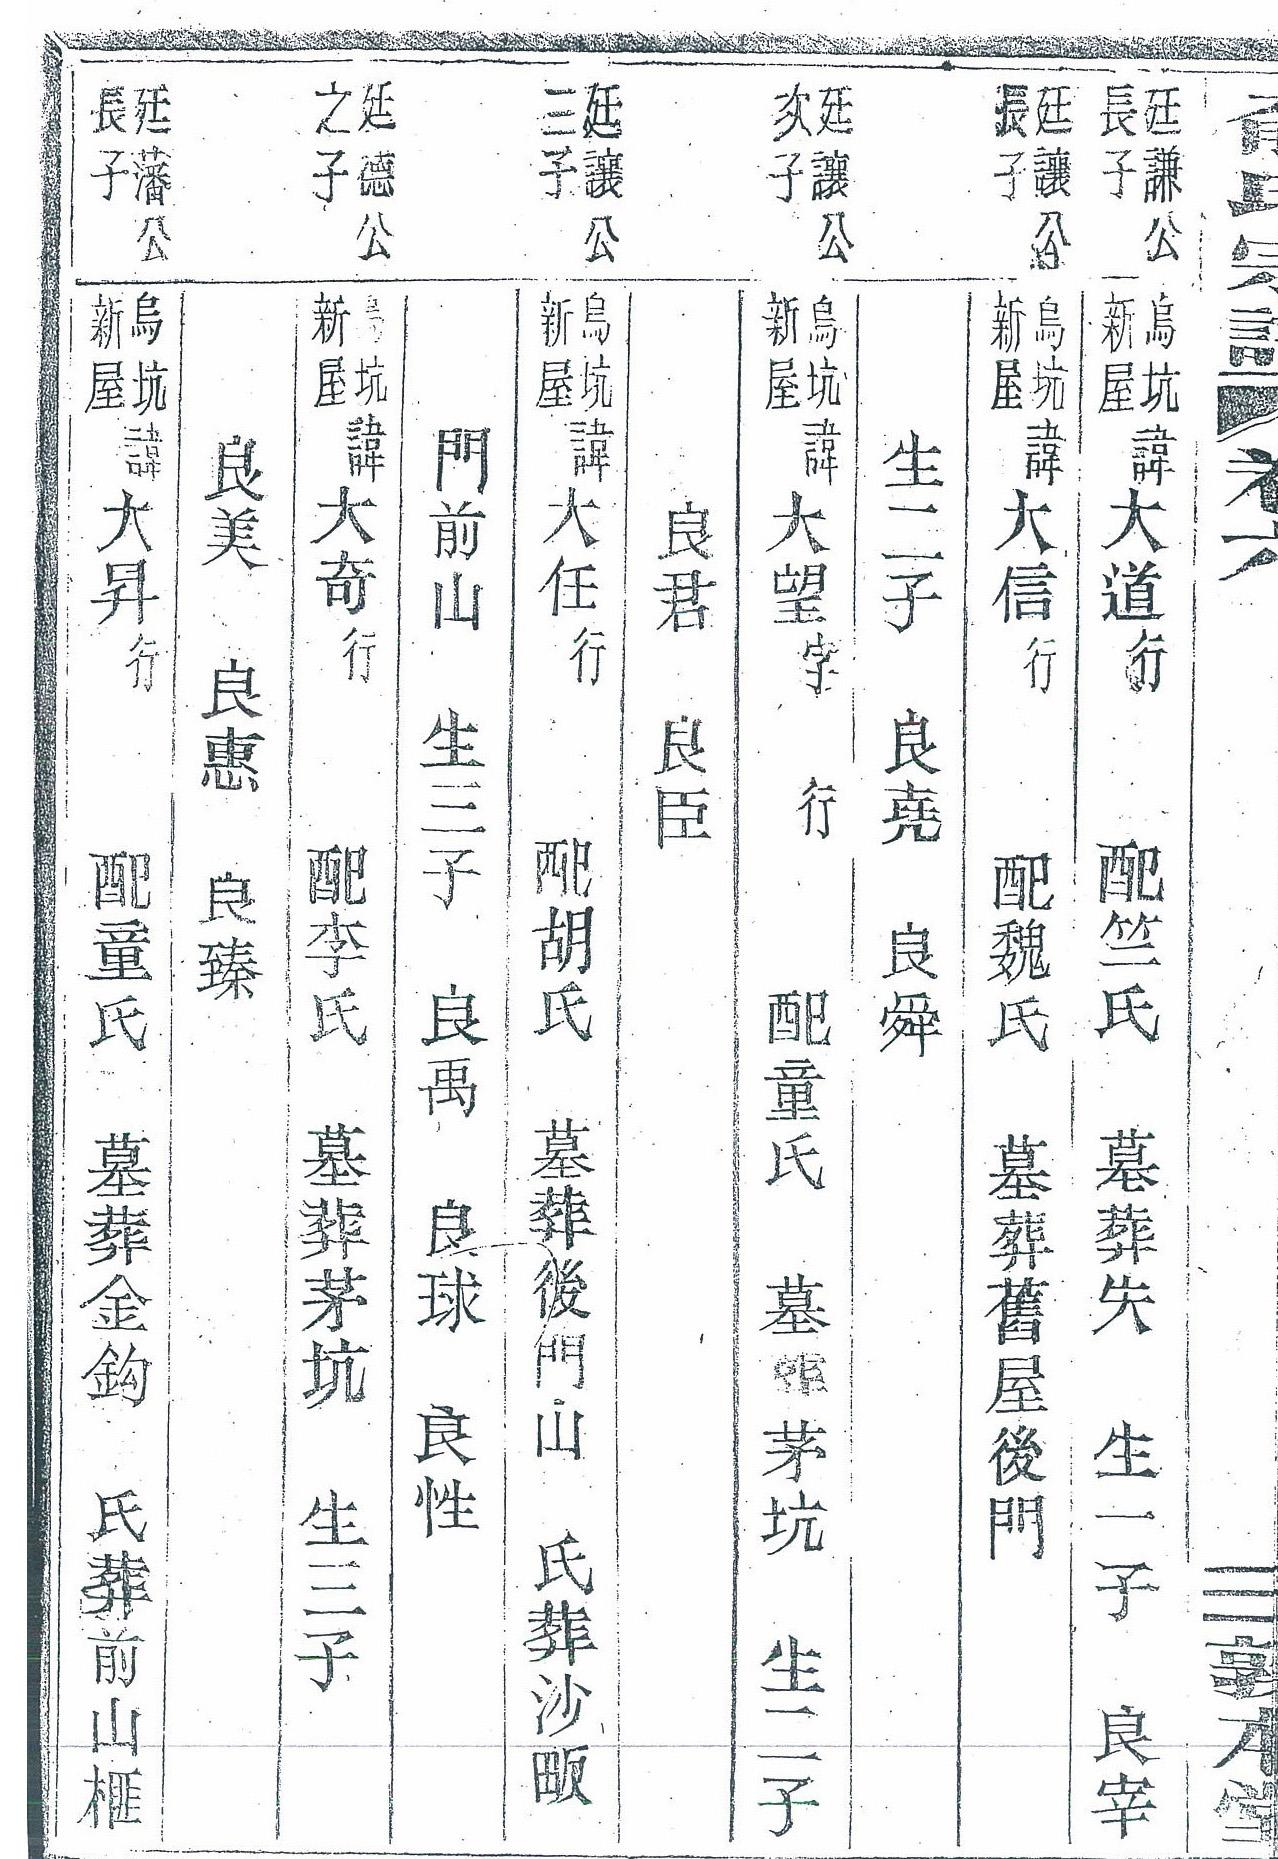 氏宗譜 卷六 三 敦本堂
廷謙公長子 烏坑新屋 諱大道行 配竺氏 墓葬失 生一子 良宰
廷讓公長子 烏坑新屋 諱大信行 配魏氏 墓葬舊屋後門
生二子 良堯 良舜
廷讓公次子 烏坑新屋 諱大望字 行 配童氏 墓葬茅坑 生二子
良君 良臣
廷讓公三子 烏坑新屋 諱大任行 配胡氏 墓葬後門山 氏葬沙畈
門前山 生三子 良禹 良球 良性
廷德公之子 烏坑新屋 諱大奇行 配李氏 墓葬茅坑 生三子
良美 良惠 良臻
廷藩公長子 烏坑新屋 諱大昇行 配童氏 墓葬金鈎 氏葬前山榧